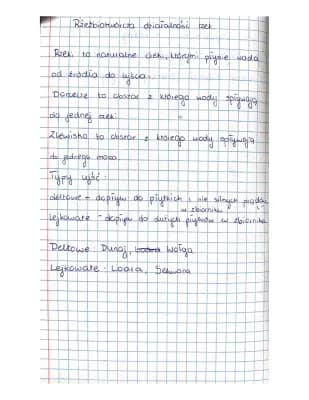 Rzeźbiotwórcza działalność rzek.
Rzeki to naturalne cieki, którymi płynie woda
od źródła do ujścia.
Dorzecze to obszar z którego wody spływają
do jednej rzeki.
Zlewisko to obszar z którego wody spływają
do jednego morza.
Typy ujść:
deltowe - do płytkich i nie silnych prądów
w zbiorniku
Lejkowate - do dużych pływów w zbiorniku
Deltowe: Dunaj, Wołga
Lejkowate: Loara, Sekwana